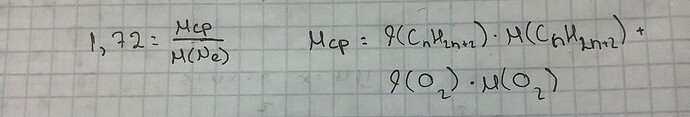 1,72 = Mcp / M(Ne) Mcp = φ(CnH2n+2) · M(CnH2n+2) +
φ(O2) · M(O2)